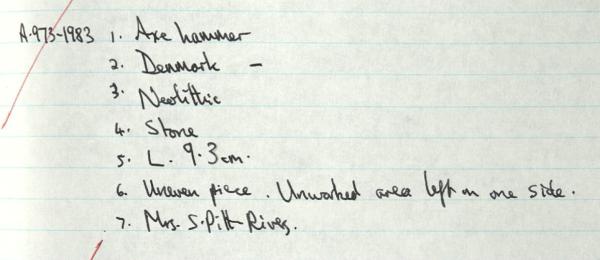 A.973-1983 1. Axe hammer
2. Denmark –
3. Neolithic
4. Stone
5. L. 9.3cm.
6. Uneven piece. Unworked area left on one side.
7. Mrs. S. Pitt-Rivers.